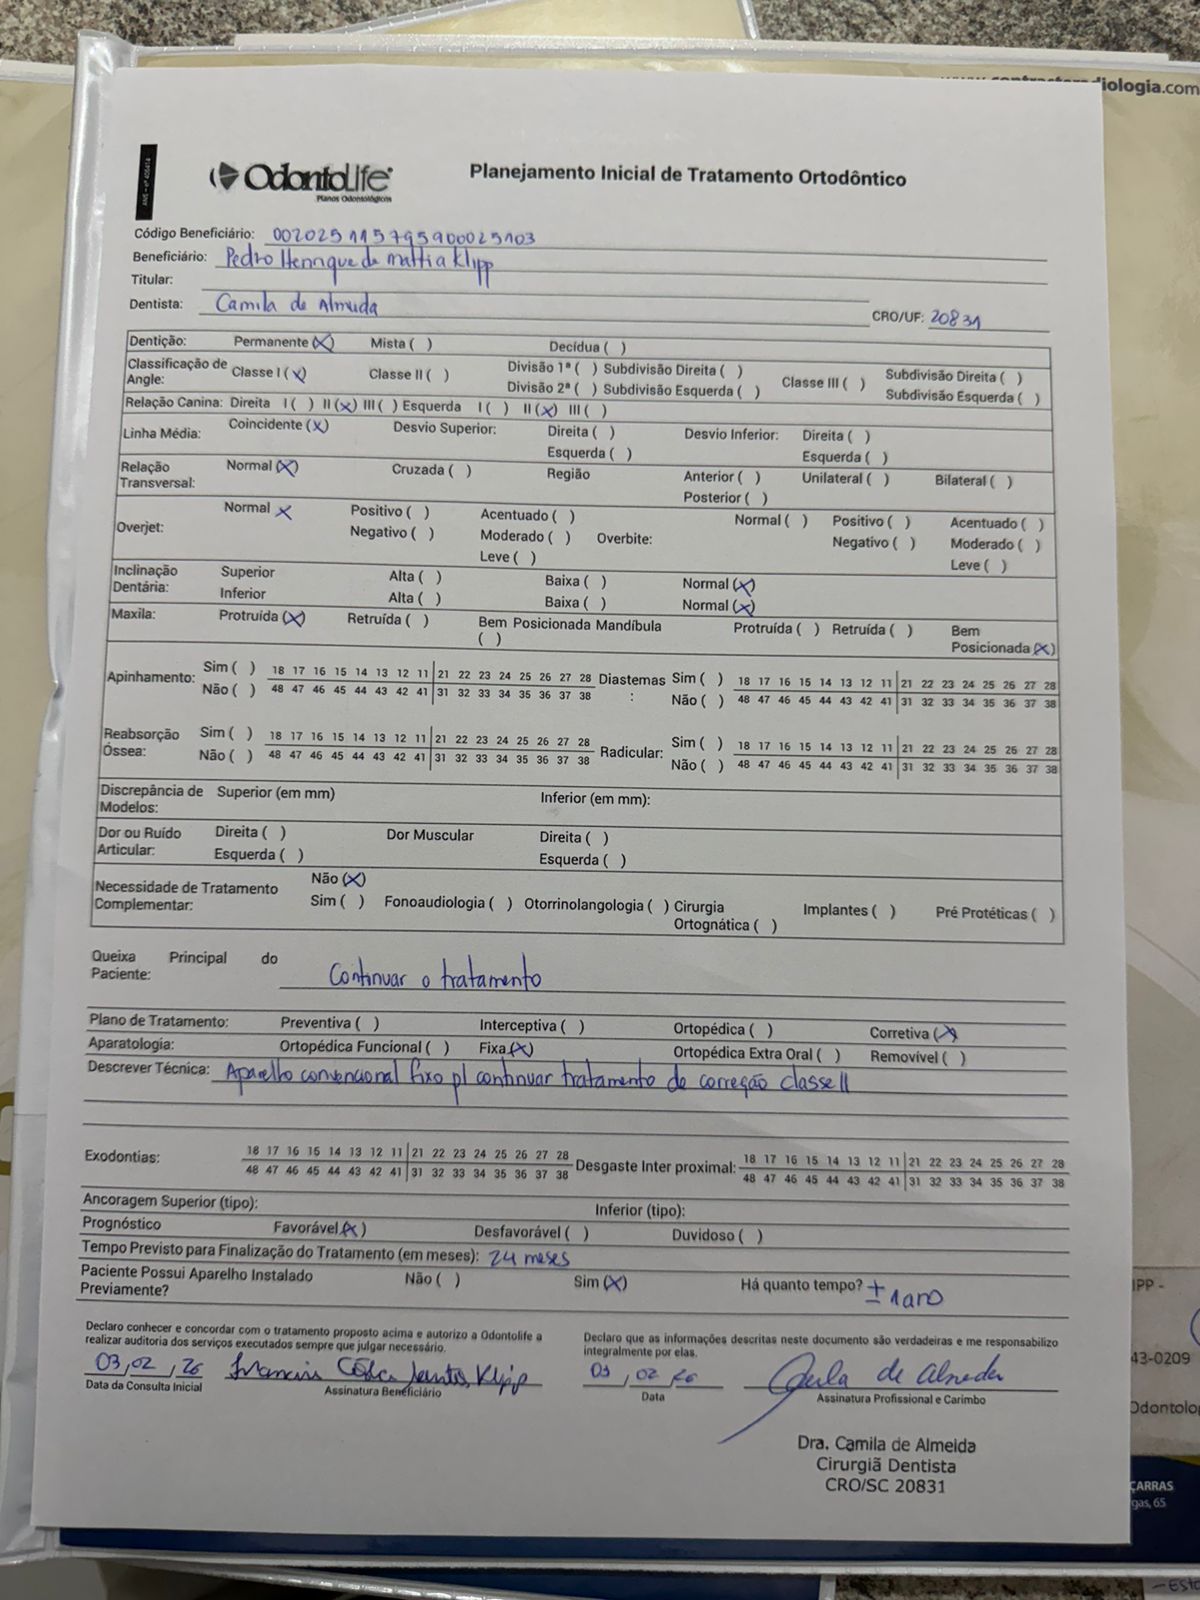 www.contrastoradiologia.com
ANS - nº 406414
OdontoLife
Planos Odontológicos
Planejamento Inicial de Tratamento Ortodôntico
Código Beneficiário: 00202511579590002​5103
Beneficiário: Pedro Henrique de Mattia Klipp
Titular:
Dentista: Camila de Almeida CRO/UF: 20831
Dentição: Permanente (X) Mista ( ) Decídua ( )
Classificação de Angle: Classe I (X) Classe II ( ) Divisão 1ª ( ) Subdivisão Direita ( ) Classe III ( ) Subdivisão Direita ( )
Divisão 2ª ( ) Subdivisão Esquerda ( ) Subdivisão Esquerda ( )
Relação Canina: Direita I ( ) II (X) III ( ) Esquerda I ( ) II (X) III ( )
Linha Média: Coincidente (X) Desvio Superior: Direita ( ) Desvio Inferior: Direita ( )
Esquerda ( ) Esquerda ( )
Relação Transversal: Normal (X) Cruzada ( ) Região Anterior ( ) Unilateral ( ) Bilateral ( )
Posterior ( )
Overjet: Normal X Positivo ( ) Acentuado ( ) Overbite: Normal ( ) Positivo ( ) Acentuado ( )
Negativo ( ) Moderado ( ) Negativo ( ) Moderado ( )
Leve ( ) Leve ( )
Inclinação Dentária: Superior Alta ( ) Baixa ( ) Normal (X)
Inferior Alta ( ) Baixa ( ) Normal (X)
Maxila: Protruída (X) Retruída ( ) Bem Posicionada ( ) Mandíbula Protruída ( ) Retruída ( ) Bem Posicionada (X)
Apinhamento: Sim ( ) 18 17 16 15 14 13 12 11 21 22 23 24 25 26 27 28 Diastemas: Sim ( ) 18 17 16 15 14 13 12 11 21 22 23 24 25 26 27 28
Não ( ) 48 47 46 45 44 43 42 41 31 32 33 34 35 36 37 38 Não ( ) 48 47 46 45 44 43 42 41 31 32 33 34 35 36 37 38
Reabsorção Óssea: Sim ( ) 18 17 16 15 14 13 12 11 21 22 23 24 25 26 27 28 Radicular: Sim ( ) 18 17 16 15 14 13 12 11 21 22 23 24 25 26 27 28
Não ( ) 48 47 46 45 44 43 42 41 31 32 33 34 35 36 37 38 Não ( ) 48 47 46 45 44 43 42 41 31 32 33 34 35 36 37 38
Discrepância de Modelos: Superior (em mm) Inferior (em mm):
Dor ou Ruído Articular: Direita ( ) Dor Muscular Direita ( )
Esquerda ( ) Esquerda ( )
Necessidade de Tratamento Complementar: Não (X)
Sim ( ) Fonoaudiologia ( ) Otorrinolangologia ( ) Cirurgia Ortognática ( ) Implantes ( ) Pré Protéticas ( )
Queixa Principal do Paciente: Continuar o tratamento
Plano de Tratamento: Preventiva ( ) Interceptiva ( ) Ortopédica ( ) Corretiva (X)
Aparatologia: Ortopédica Funcional ( ) Fixa (X) Ortopédica Extra Oral ( ) Removível ( )
Descrever Técnica: Aparelho convencional fixo p/ continuar tratamento de correção classe II
Exodontias: 18 17 16 15 14 13 12 11 21 22 23 24 25 26 27 28 Desgaste Inter proximal: 18 17 16 15 14 13 12 11 21 22 23 24 25 26 27 28
48 47 46 45 44 43 42 41 31 32 33 34 35 36 37 38 48 47 46 45 44 43 42 41 31 32 33 34 35 36 37 38
Ancoragem Superior (tipo): Inferior (tipo):
Prognóstico Favorável (X) Desfavorável ( ) Duvidoso ( )
Tempo Previsto para Finalização do Tratamento (em meses): 24 meses
Paciente Possui Aparelho Instalado Previamente? Não ( ) Sim (X) Há quanto tempo? ± 1 ano
Declaro conhecer e concordar com o tratamento proposto acima e autorizo a Odontolife a realizar auditoria dos serviços executados sempre que julgar necessário.
Declaro que as informações descritas neste documento são verdadeiras e me responsabilizo integralmente por elas.
03/02/26 Klipp 03/02/26 de Almeida
Data da Consulta Inicial Assinatura Beneficiário Data Assinatura Profissional e Carimbo
Dra. Camila de Almeida
Cirurgiã Dentista
CRO/SC 20831
IPP -
43-0209
Odontolog
ÇARRAS
gas, 65